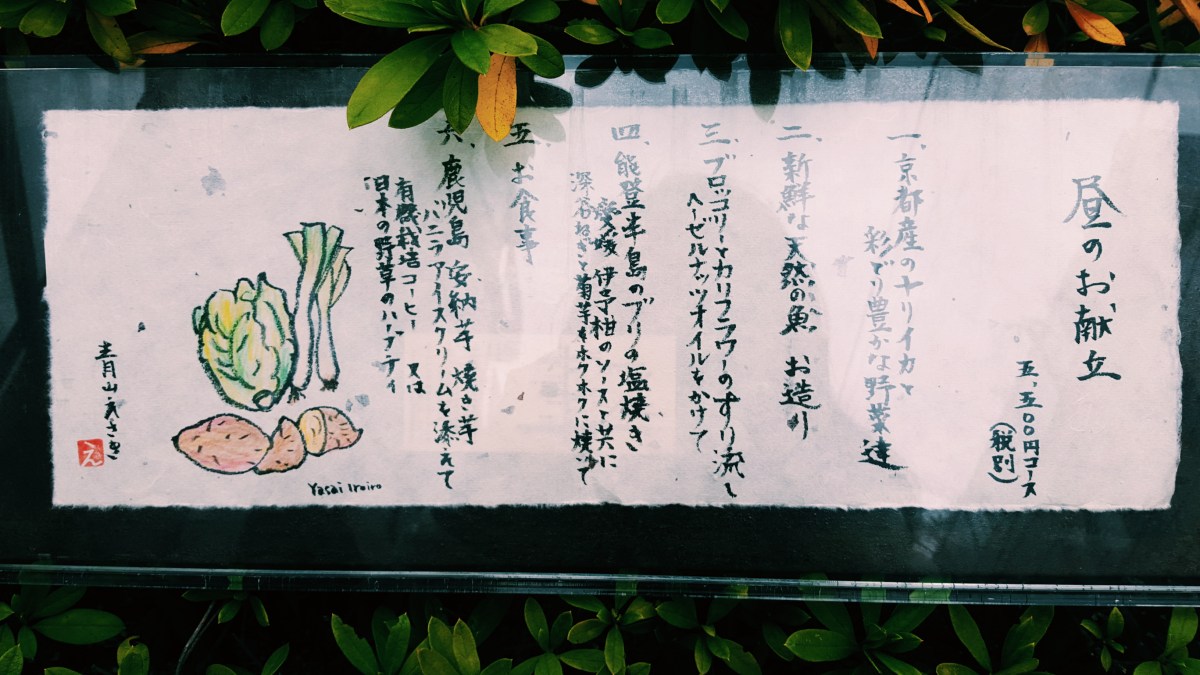 昼のお献立
五、五〇〇円コース
(税別)
一、京都産のヤリイカと
彩どり豊かな野菜達
二、新鮮な天然の魚 お造り
三、ブロッコリーとカリフラワーのすり流し
ヘーゼルナッツオイルをかけて
四、能登半島のブリの塩焼き
愛媛 伊予柑のソースと共に
深谷ねぎと菊芋をホクホクに焼いて
五、お食事
六、鹿児島 安納芋 焼き芋
バニラアイスクリームを添えて
有機栽培コーヒー 又は
日本の野草のハーブティ
Yasai Iroiro
青山 えさき
え